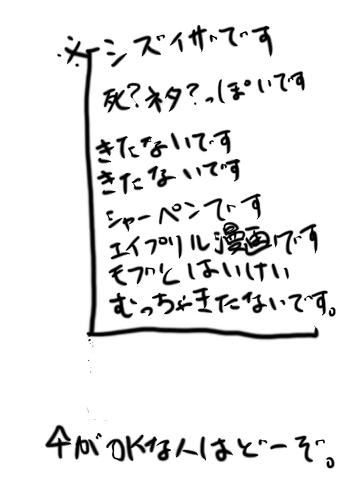 ※シズイザです
死?ネタ?っぽいです
きたないです
きたないです
シャーペンです
エイプリル漫画です
モブとはいけい
むっちゃきたないです。
↑がOKな人はどーぞ。